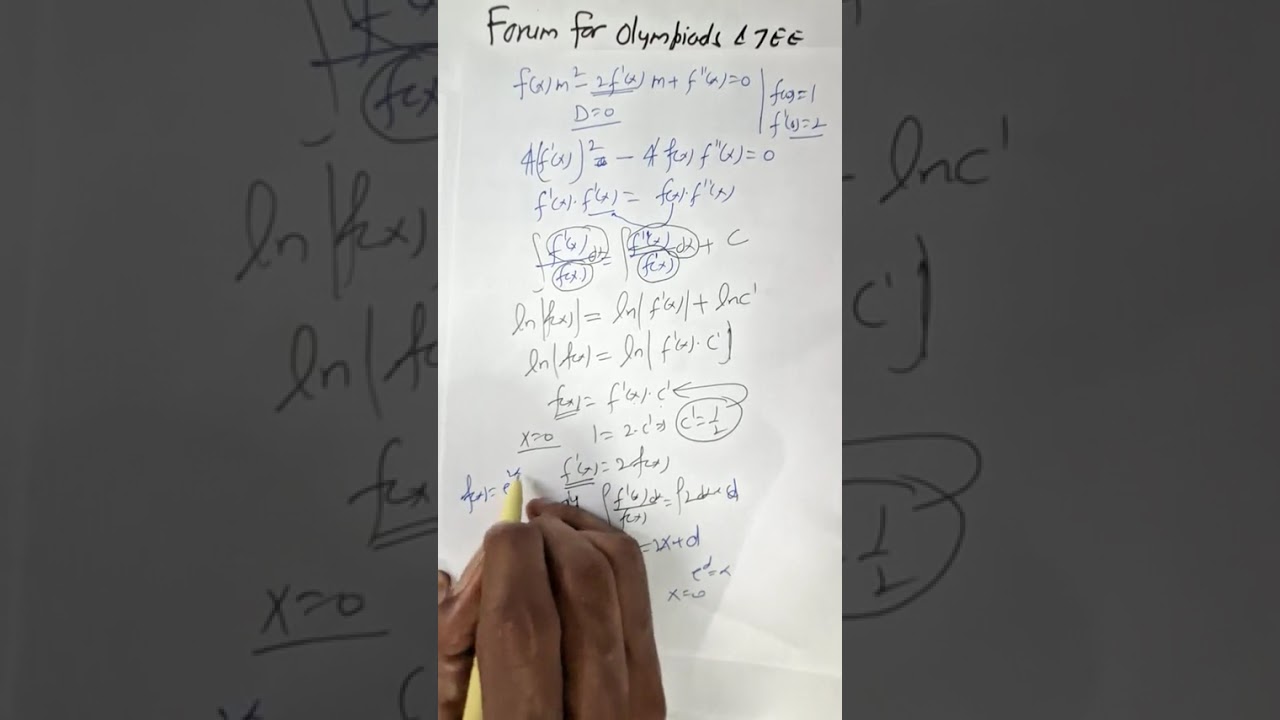 Forum for Olympiads & JEE
f(x)m² - 2f'(x)m + f''(x) = 0
f(0) = 1
D = 0
f'(0) = 2
4(f'(x))² - 4f(x)f''(x) = 0
f'(x)·f'(x) = f(x)·f''(x)
∫ f'(x)/f(x) dx = ∫ f''(x)/f'(x) dx + C
ln|f(x)| = ln|f'(x)| + lnc'
ln|f(x) = ln|f'(x)·c']
f(x) = f'(x)·c'
x=0 1 = 2·c' ⇒ c' = 1/2
f'(x) = 2f(x)
f(x) = e
∫ f'(x)dx/f(x) = ∫2dx + d
= 2x + d
x=0